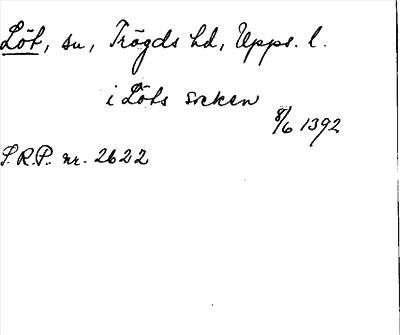 Löt, sn, Trögds hd, Upps. l.
i Löts socken
8/6 1392
S.R.P. nr. 2622